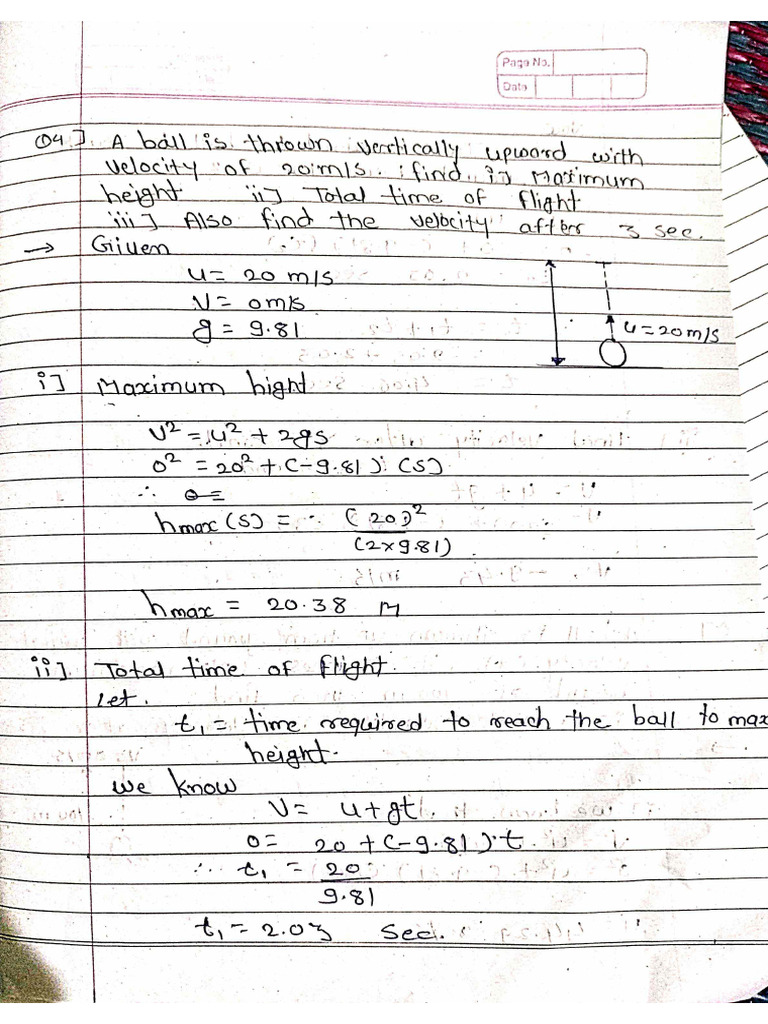 Page No.
Date
Q4] A ball is thrown vertically upword with
velocity of 20 m/s. find i] Maximum
height ii] Total time of flight
iii] Also find the velocity after 3 sec.
→ Given
u = 20 m/s
V = 0 m/s
g = 9.81
u = 20 m/s
i] Maximum hight
V² = u² + 2gs
0² = 20² + (-9.81) (s)
∴ 0 =
hmax (s) = (20)²
(2×9.81)
hmax = 20.38 M
ii] Total time of flight.
Let.
t₁ = time required to reach the ball to max
height.
we know
V = u + gt
0 = 20 + (-9.81).t
∴ t₁ = 20
9.81
t₁ = 2.03 Sec.